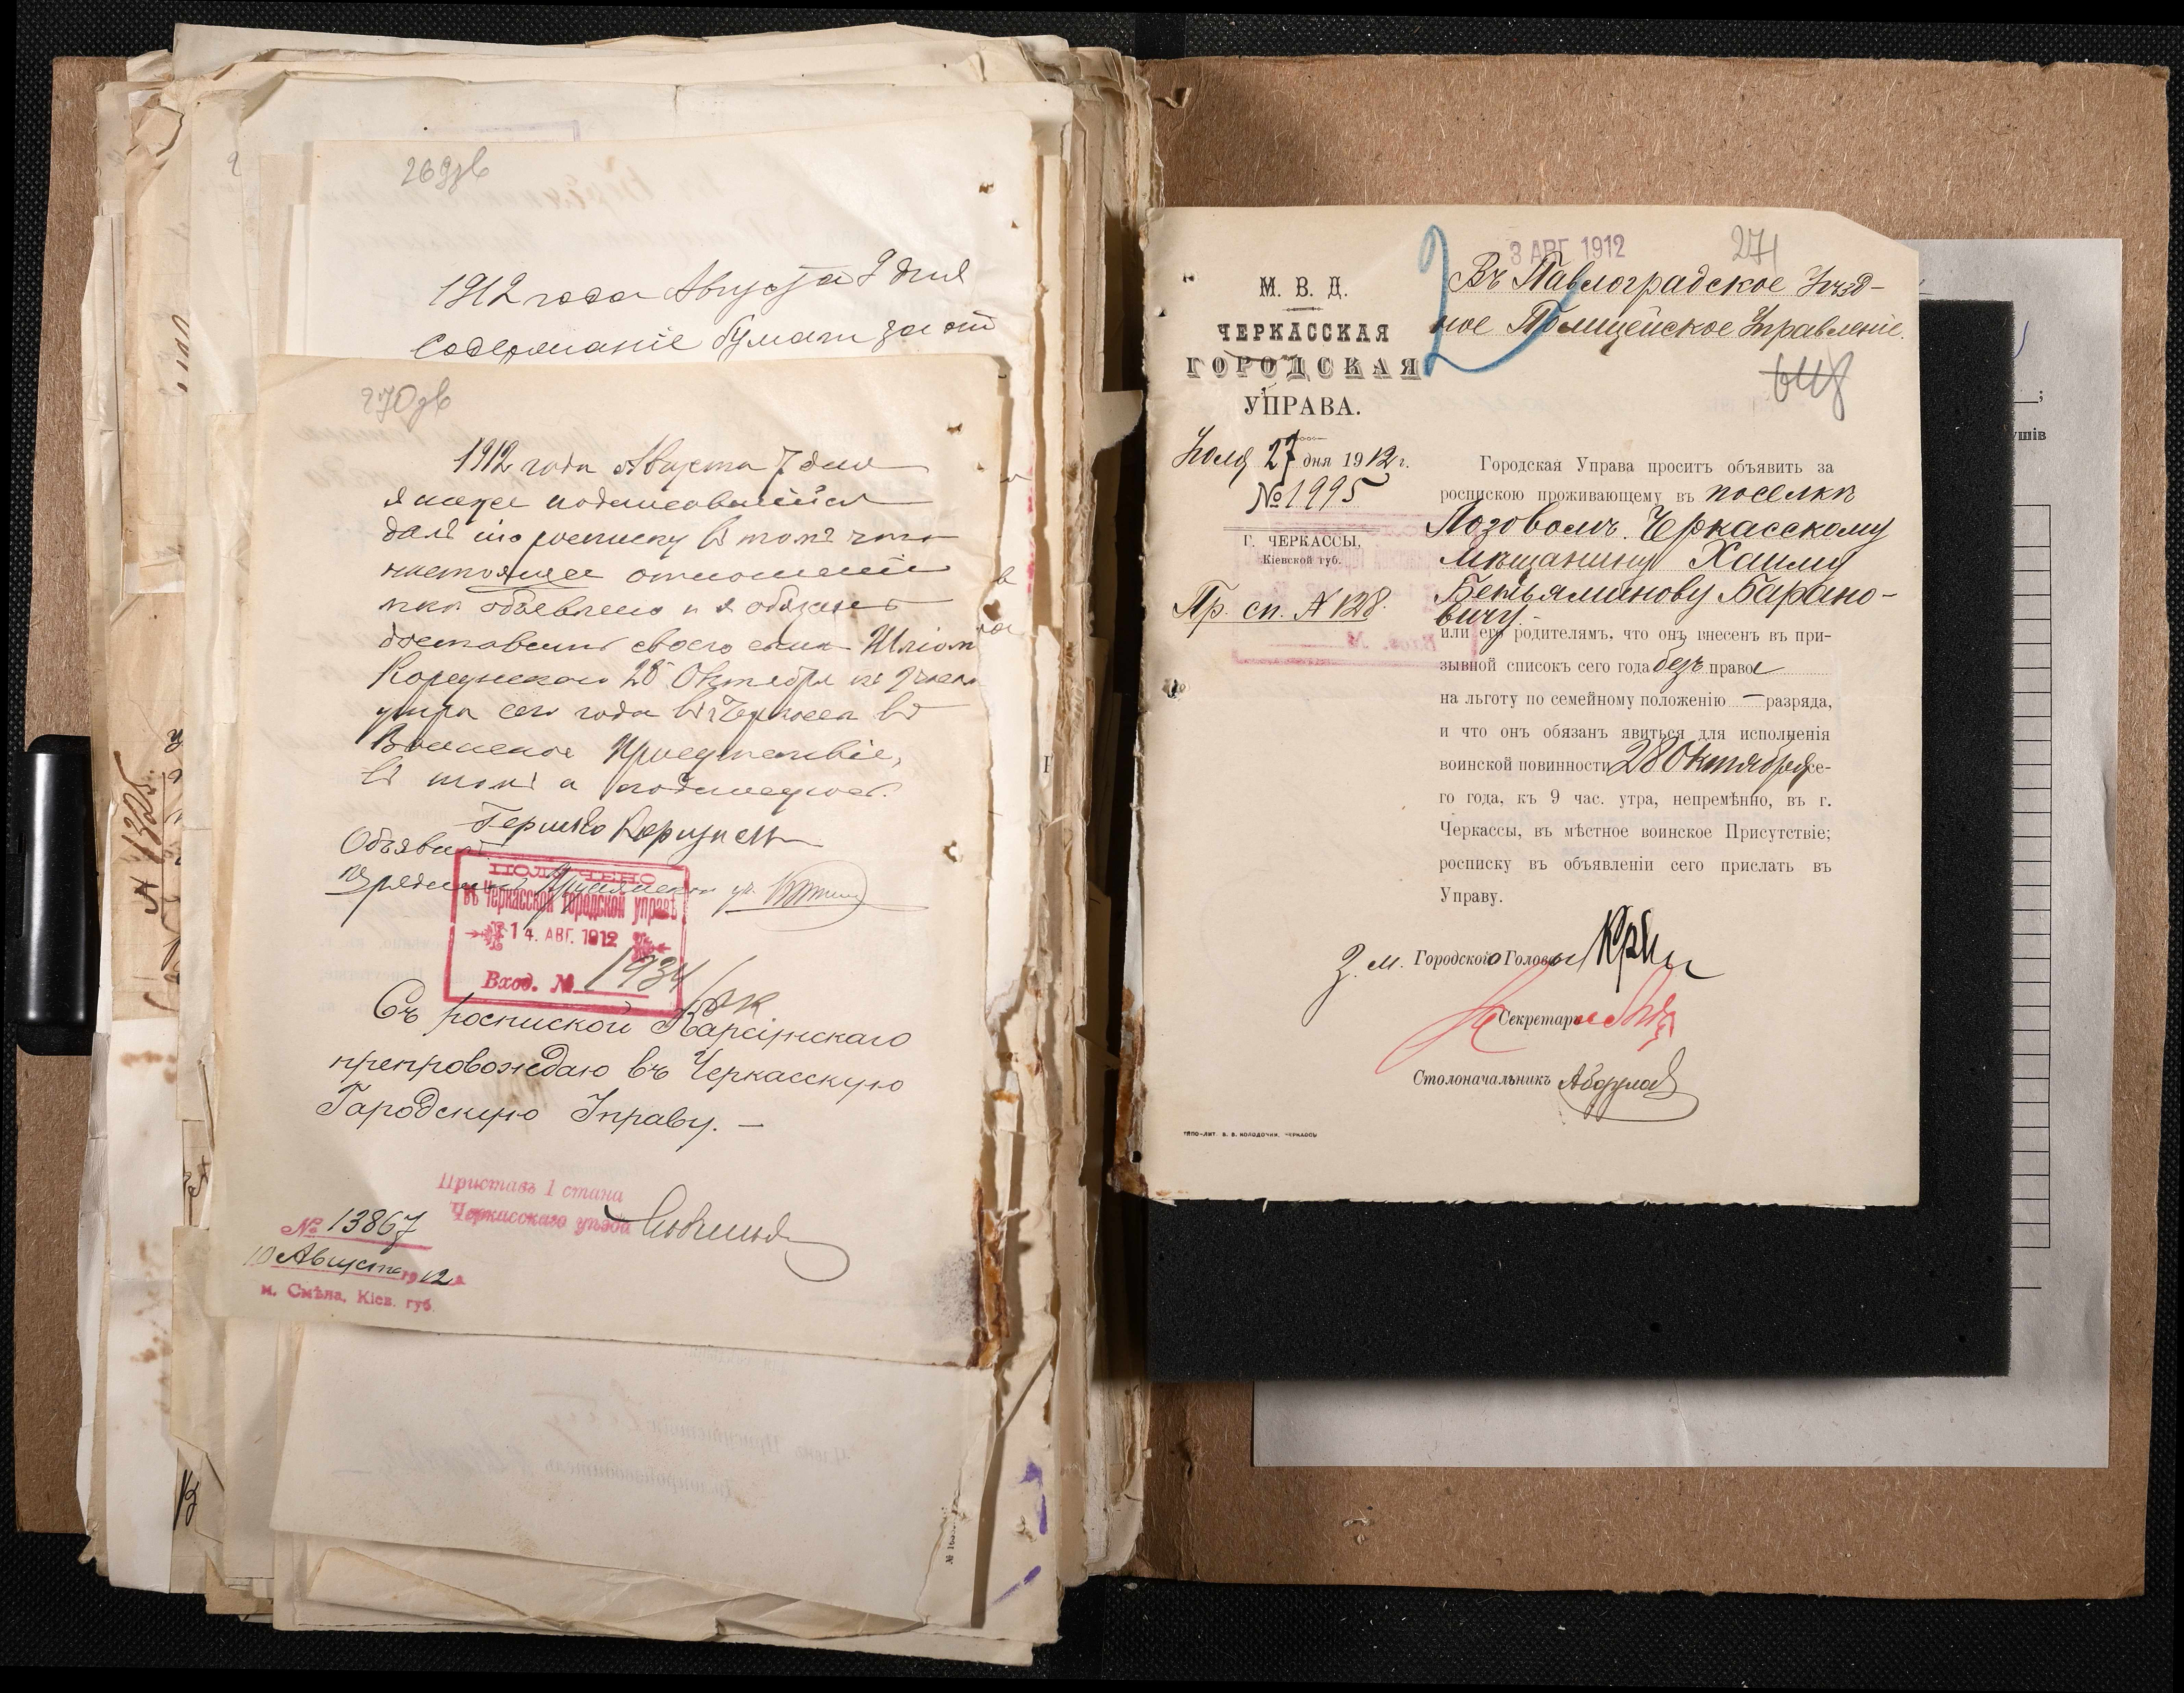 269зв
1912 года Августа 9 дня
содержаніе бумаги
270зв
1912 года Августа 7 дня
я ниже подписавшійся
далъ сію росписку въ томъ что
настоящее отношеніе
мнѣ объявлено и я обязанъ
доставить своего сына
Корсунскаго 28 Октября къ 9 часам
утра сего года въ г Черкассы въ
Воинское Присутствіе,
въ томъ и подписуюсь.
Гершко Корсунскій
Объявилъ
Урядникъ
ПОЛУЧЕНО
въ Черкасской городской управѣ
14. АВГ. 1912
Вход. № 1934
Съ роспиской Карсунскаго
препровождаю въ Черкасскую
Гародскую Управу. —
Приставъ 1 стана
Черкасскаго уѣзда
№ 13867
10 Августа 1912 г.
м. Смѣла, Кіев. губ.
№ 1325.
3 АВГ 1912
271
2
М. В. Д.
ЧЕРКАССКАЯ
ГОРОДСКАЯ
УПРАВА.
Іюля 27 дня 1912 г.
№ 1995
Г. ЧЕРКАССЫ,
Кіевской губ.
Пр. сп. № 128.
Въ Павлоградское Уѣзд-
ное Полицейское Управленіе.
Городская Управа проситъ объявить за
роспискою проживающему въ поселкѣ
Лозовомъ. Черкасскому
мѣщанину Хаиму
Беньяминову Барано-
вичу
или его родителямъ, что онъ внесенъ въ при-
зывной списокъ сего года безъ права
на льготу по семейному положенію — разряда,
и что онъ обязанъ явиться для исполненія
воинской повинности 28 Октября се-
го года, къ 9 час. утра, непремѣнно, въ г.
Черкассы, въ мѣстное воинское Присутствіе;
росписку въ объявленіи сего прислать въ
Управу.
З. м. Городского Головы
Секретарь
Столоначальникъ
ТИПО-ЛИТ. В. В. КОЛОДОЧКИ. ЧЕРКАССЫ